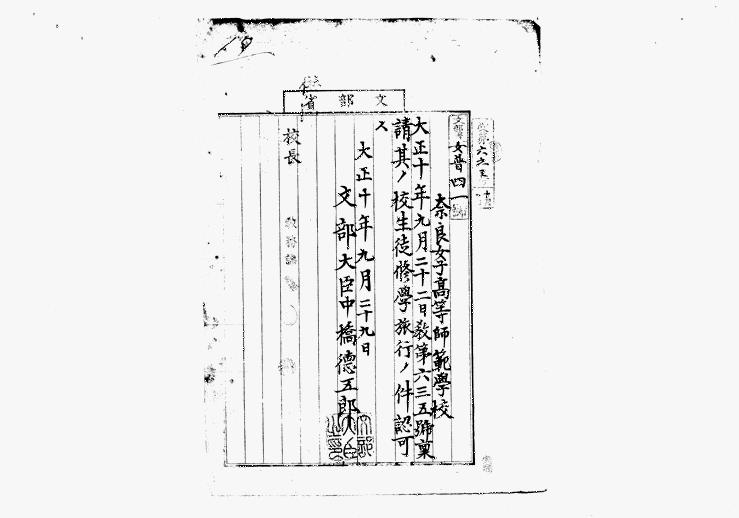 文部省
女普四一
奈良女子高等師範學校
大正十年九月二十二日敎第六三五號稟
請其ノ校生徒修學旅行ノ件認可
ス
大正十年九月二十九日
文部大臣中橋德五郎
校長